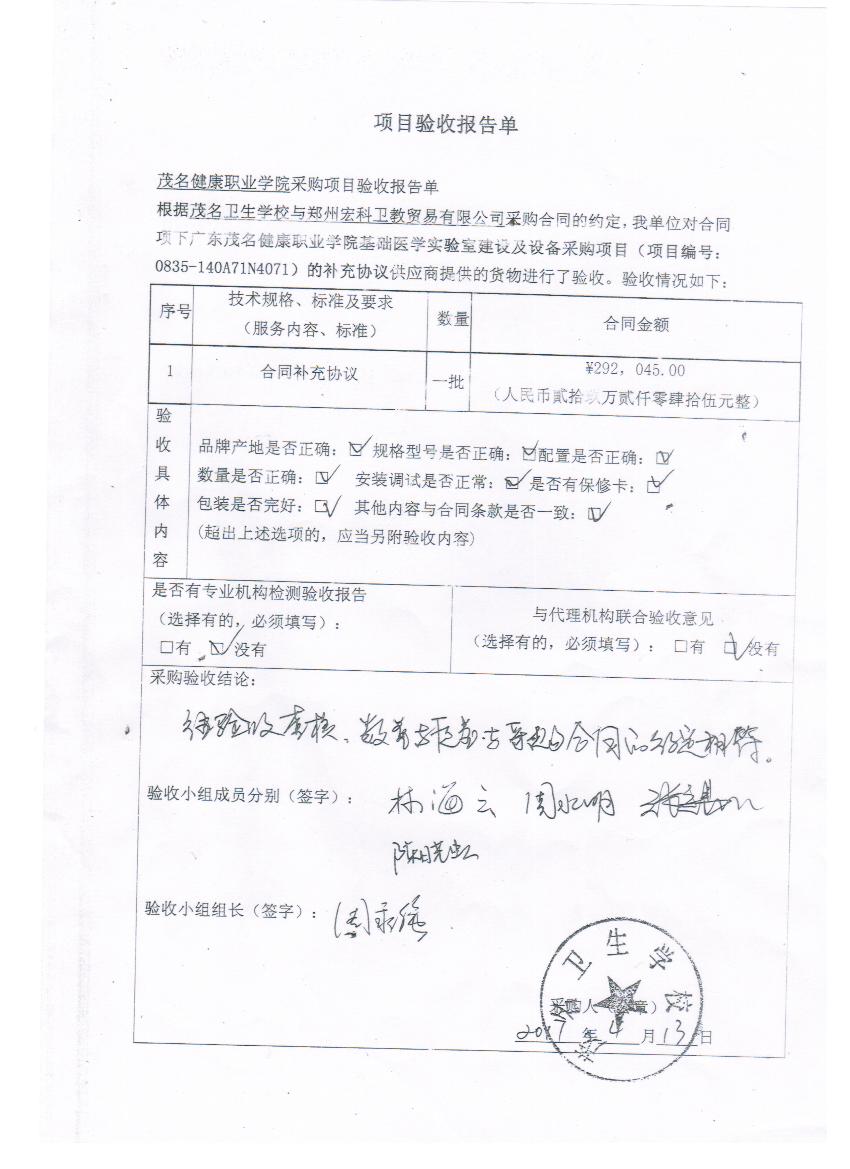 项目验收报告单
茂名健康职业学院采购项目验收报告单
根据茂名卫生学校与郑州宏科卫教贸易有限公司采购合同的约定，我单位对合同
项下广东茂名健康职业学院基础医学实验室建设及设备采购项目（项目编号：
0835-140A71N4071）的补充协议供应商提供的货物进行了验收。验收情况如下：
序号 技术规格、标准及要求（服务内容、标准） 数量 合同金额
1 合同补充协议 一批 ¥292，045.00
（人民币贰拾玖万贰仟零肆拾伍元整）
验收具体内容
品牌产地是否正确：☑ 规格型号是否正确：☑ 配置是否正确：☑
数量是否正确：☑ 安装调试是否正常：☑ 是否有保修卡：☑
包装是否完好：☑ 其他内容与合同条款是否一致：☑
(超出上述选项的，应当另附验收内容)
是否有专业机构检测验收报告
（选择有的，必须填写）：
□有 ☑没有
与代理机构联合验收意见
（选择有的，必须填写）：□有 ☑没有
采购验收结论：
经验收查核、数量与质量与采购合同的约定相符。
验收小组成员分别（签字）： 林海云 周水明
陈晓虹
验收小组组长（签字）：
采购人（盖章）
2017 年 4 月 13 日
茂名卫生学校